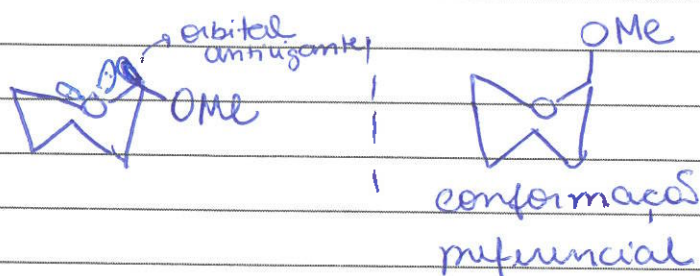 orbital
antiligante
O
OMe
OMe
O
conformação
preferencial